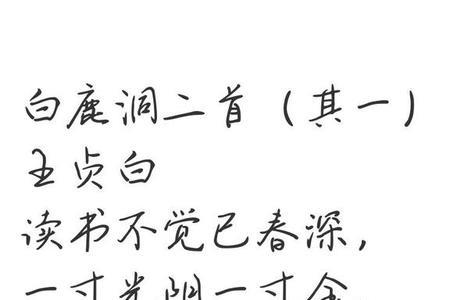 白鹿洞二首（其一）
王贞白
读书不觉已春深，
一寸光阴一寸金。